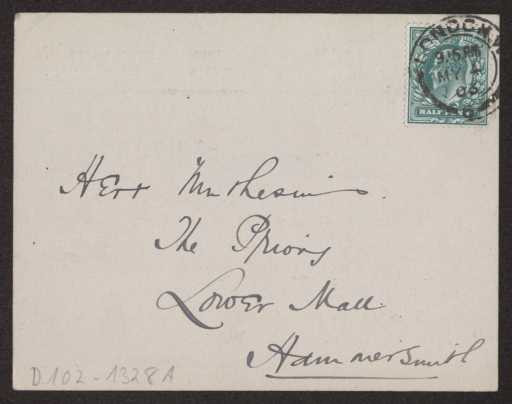 LONDON.W.
9.15PM
MY 4
03
HALFPENNY
Herr Muthesius.
The Priory
Lower Mall
Hammersmith
D.102-1328A